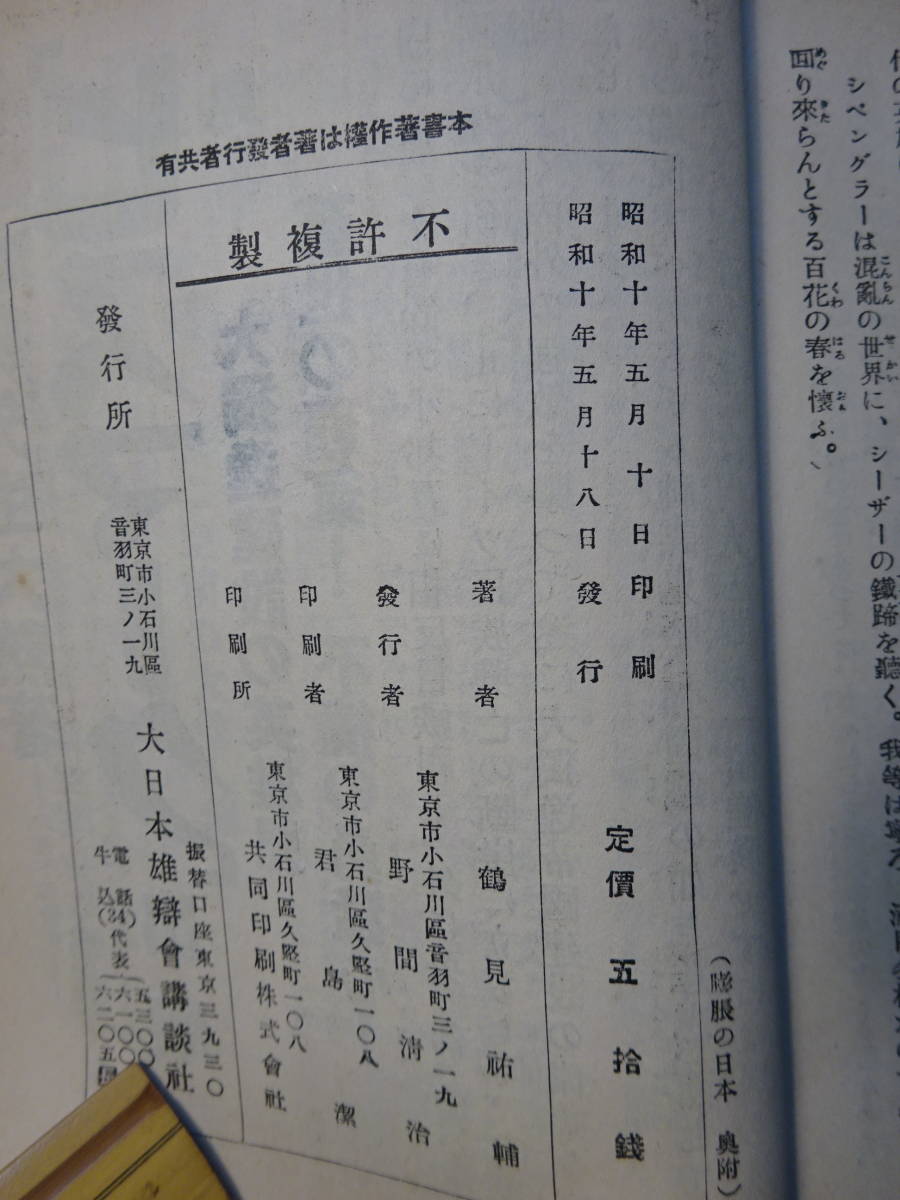 シペングラーは混亂の世界に、シーザーの鐵蹄を聽く。我等は
回り來らんとする百花の春を懷ふ。
(膨脹の日本 奥附)
有共者行發者著は權作著書本
昭和十年五月十日印刷
昭和十年五月十八日發行
定價五拾錢
製複許不
著者 鶴見祐輔
東京市小石川區音羽町三ノ一九
發行者 野間淸治
東京市小石川區久堅町一〇八
印刷者 君島潔
東京市小石川區久堅町一〇八
印刷所 共同印刷株式會社
發行所
東京市小石川區
音羽町三ノ一九
大日本雄辯會講談社
振替口座東京三九三〇
電話(34)代表
牛込
五三〇〇
六一〇〇
六二〇五